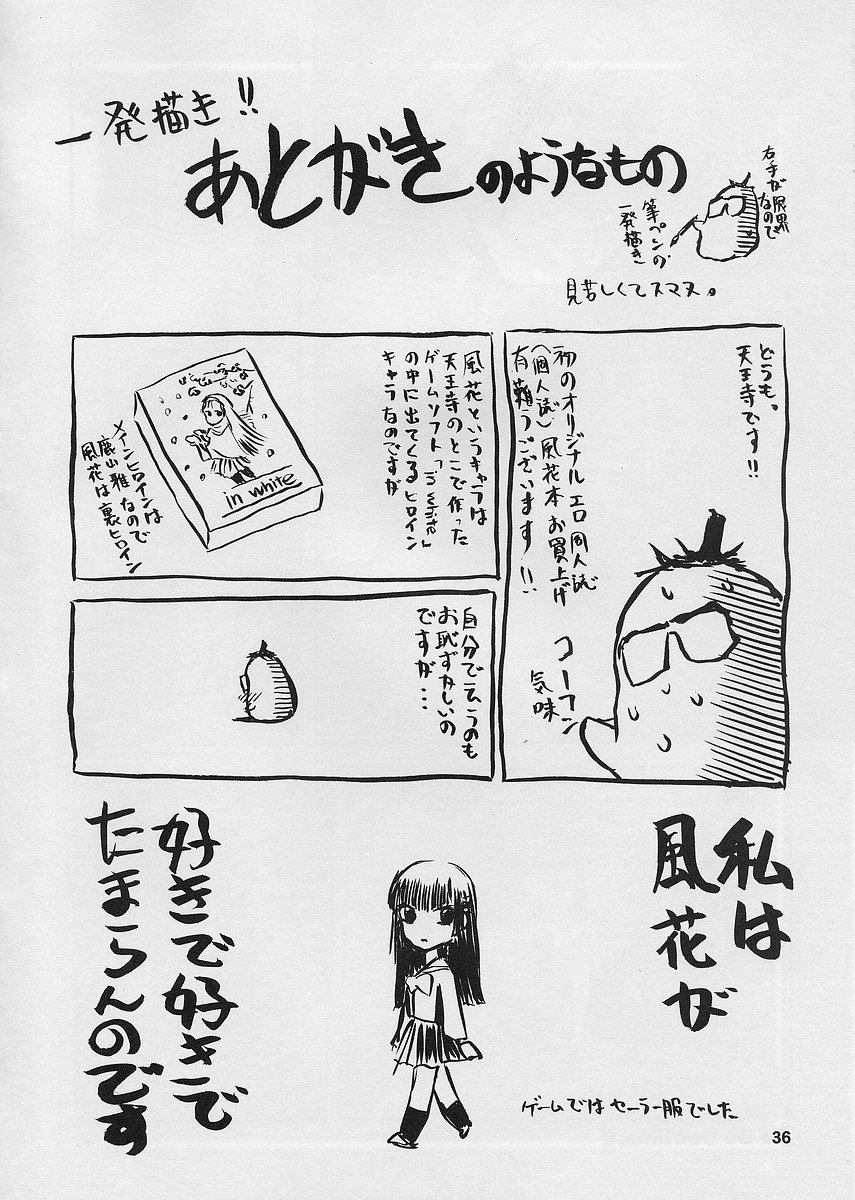 一発描き!!
あとがきのようなもの
右手が
限界
なので
筆ペンの
一発描き
見苦しくてスマヌ。
どうも。
天王寺です!!
初のオリジナル エロ 同人誌
(個人誌) 風花本 お買上げ
有難うございます!!
コーフン
気味
風花というキャラは
天王寺のとこで作った
ゲームソフト「in white」
の中に出てくるヒロイン
キャラなのですが
in white
メインヒロインは
鹿山 雅なので
風花は裏ヒロイン
自分で云うのも
お恥ずかしいの
ですが・・・
私は
風花が
好きで好きで
たまらんのです
ゲームではセーラー服でした
36